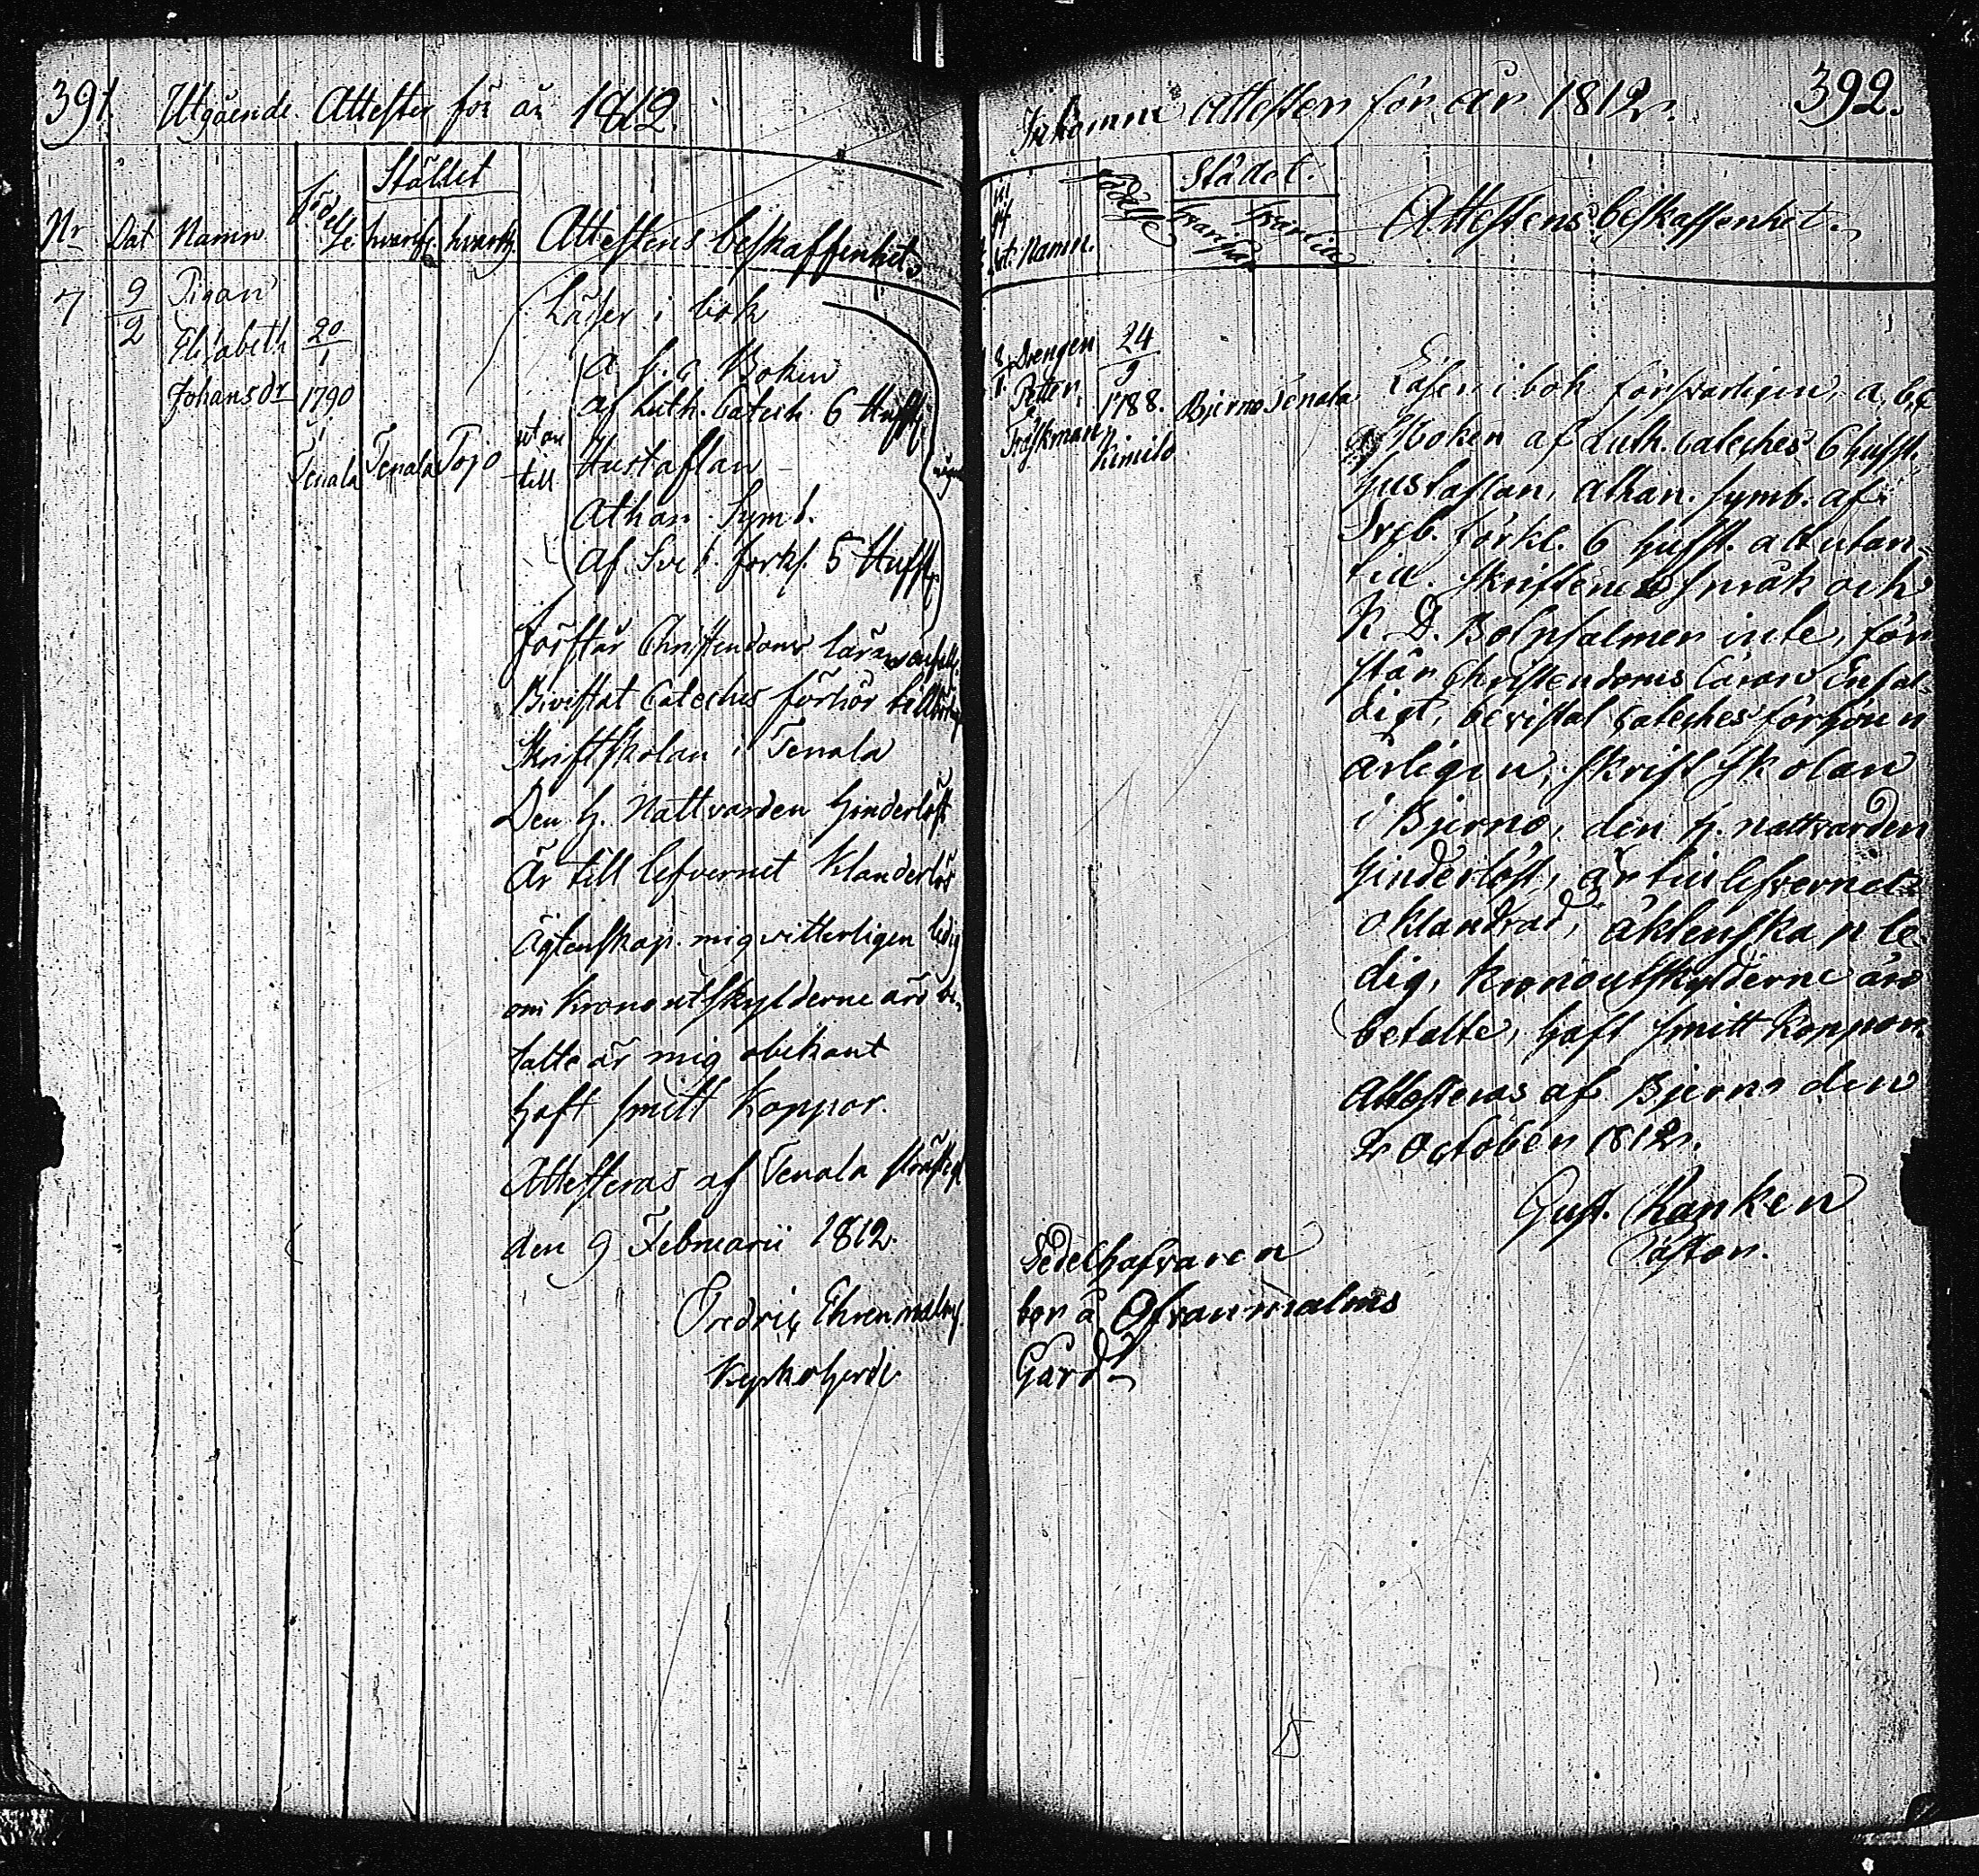 391. Utgående Attester för år 1812.
Stället
Nr Dat Namn Födelse hvarifr. hvarth. Attestens beskaffenhet
7 9/2 Pigan
Elisabeth
Johansdr
20/1
1790
i
Tenala
Tenala Pojo
Läser i bok
utan till
a. b. c Boken
af Luth. Catech. 6 Hufst.
Hustaflan
Athan. Symb.
af Sveb. förkl. 5 Hufst.
förstår Christendoms läran
Bivistat Catechis förhör
Skriftskolan i Tenala
Den H. Nattvarden Hinderlöst
Är till lefvernet Klanderlös
Ägtenskap. mig vitterligen ledig
om Kronoutskylderne äro be-
talte är mig obekant
haft smitt Koppor.
Attesteras af Tenala
den 9 Februarii 1812.
Fredric Ehrenmalm
Kyrkoherde
392.
Inkomne Attester för år 1812.
Städel.
Namn. födelse hvarifrån hvarthin Attestens beskaffenhet.
Drengen
Petter
Träskman
24/9
1788.
Kimito
Bjerno Tenala
Läser i bok försvarligen, a, b, c
Boken af Luth. Catechis 6 hufst.
Hustaflan, athan. symb. af
Sveb. förkl. 6 hufst. allt utan-
till. skriftenes språk och
K. D. Botpsalmer inte, för-
står Christendoms läran Enfal-
digt, bevistat Catechesförhören
årligen, skriftskolan
i Bjerno, den h. nattvarden
hinderlöst, är till lefvernet
oklandrad, äktenskap le-
dig, kronoutskylderne äro
betalte, haft smitt Koppor.
Attesteras af Bjerno den
2 October 1812.
Gust. Ranken
Pastor.
Sedelhafvaren
bor å Ofvanmalms
Gård